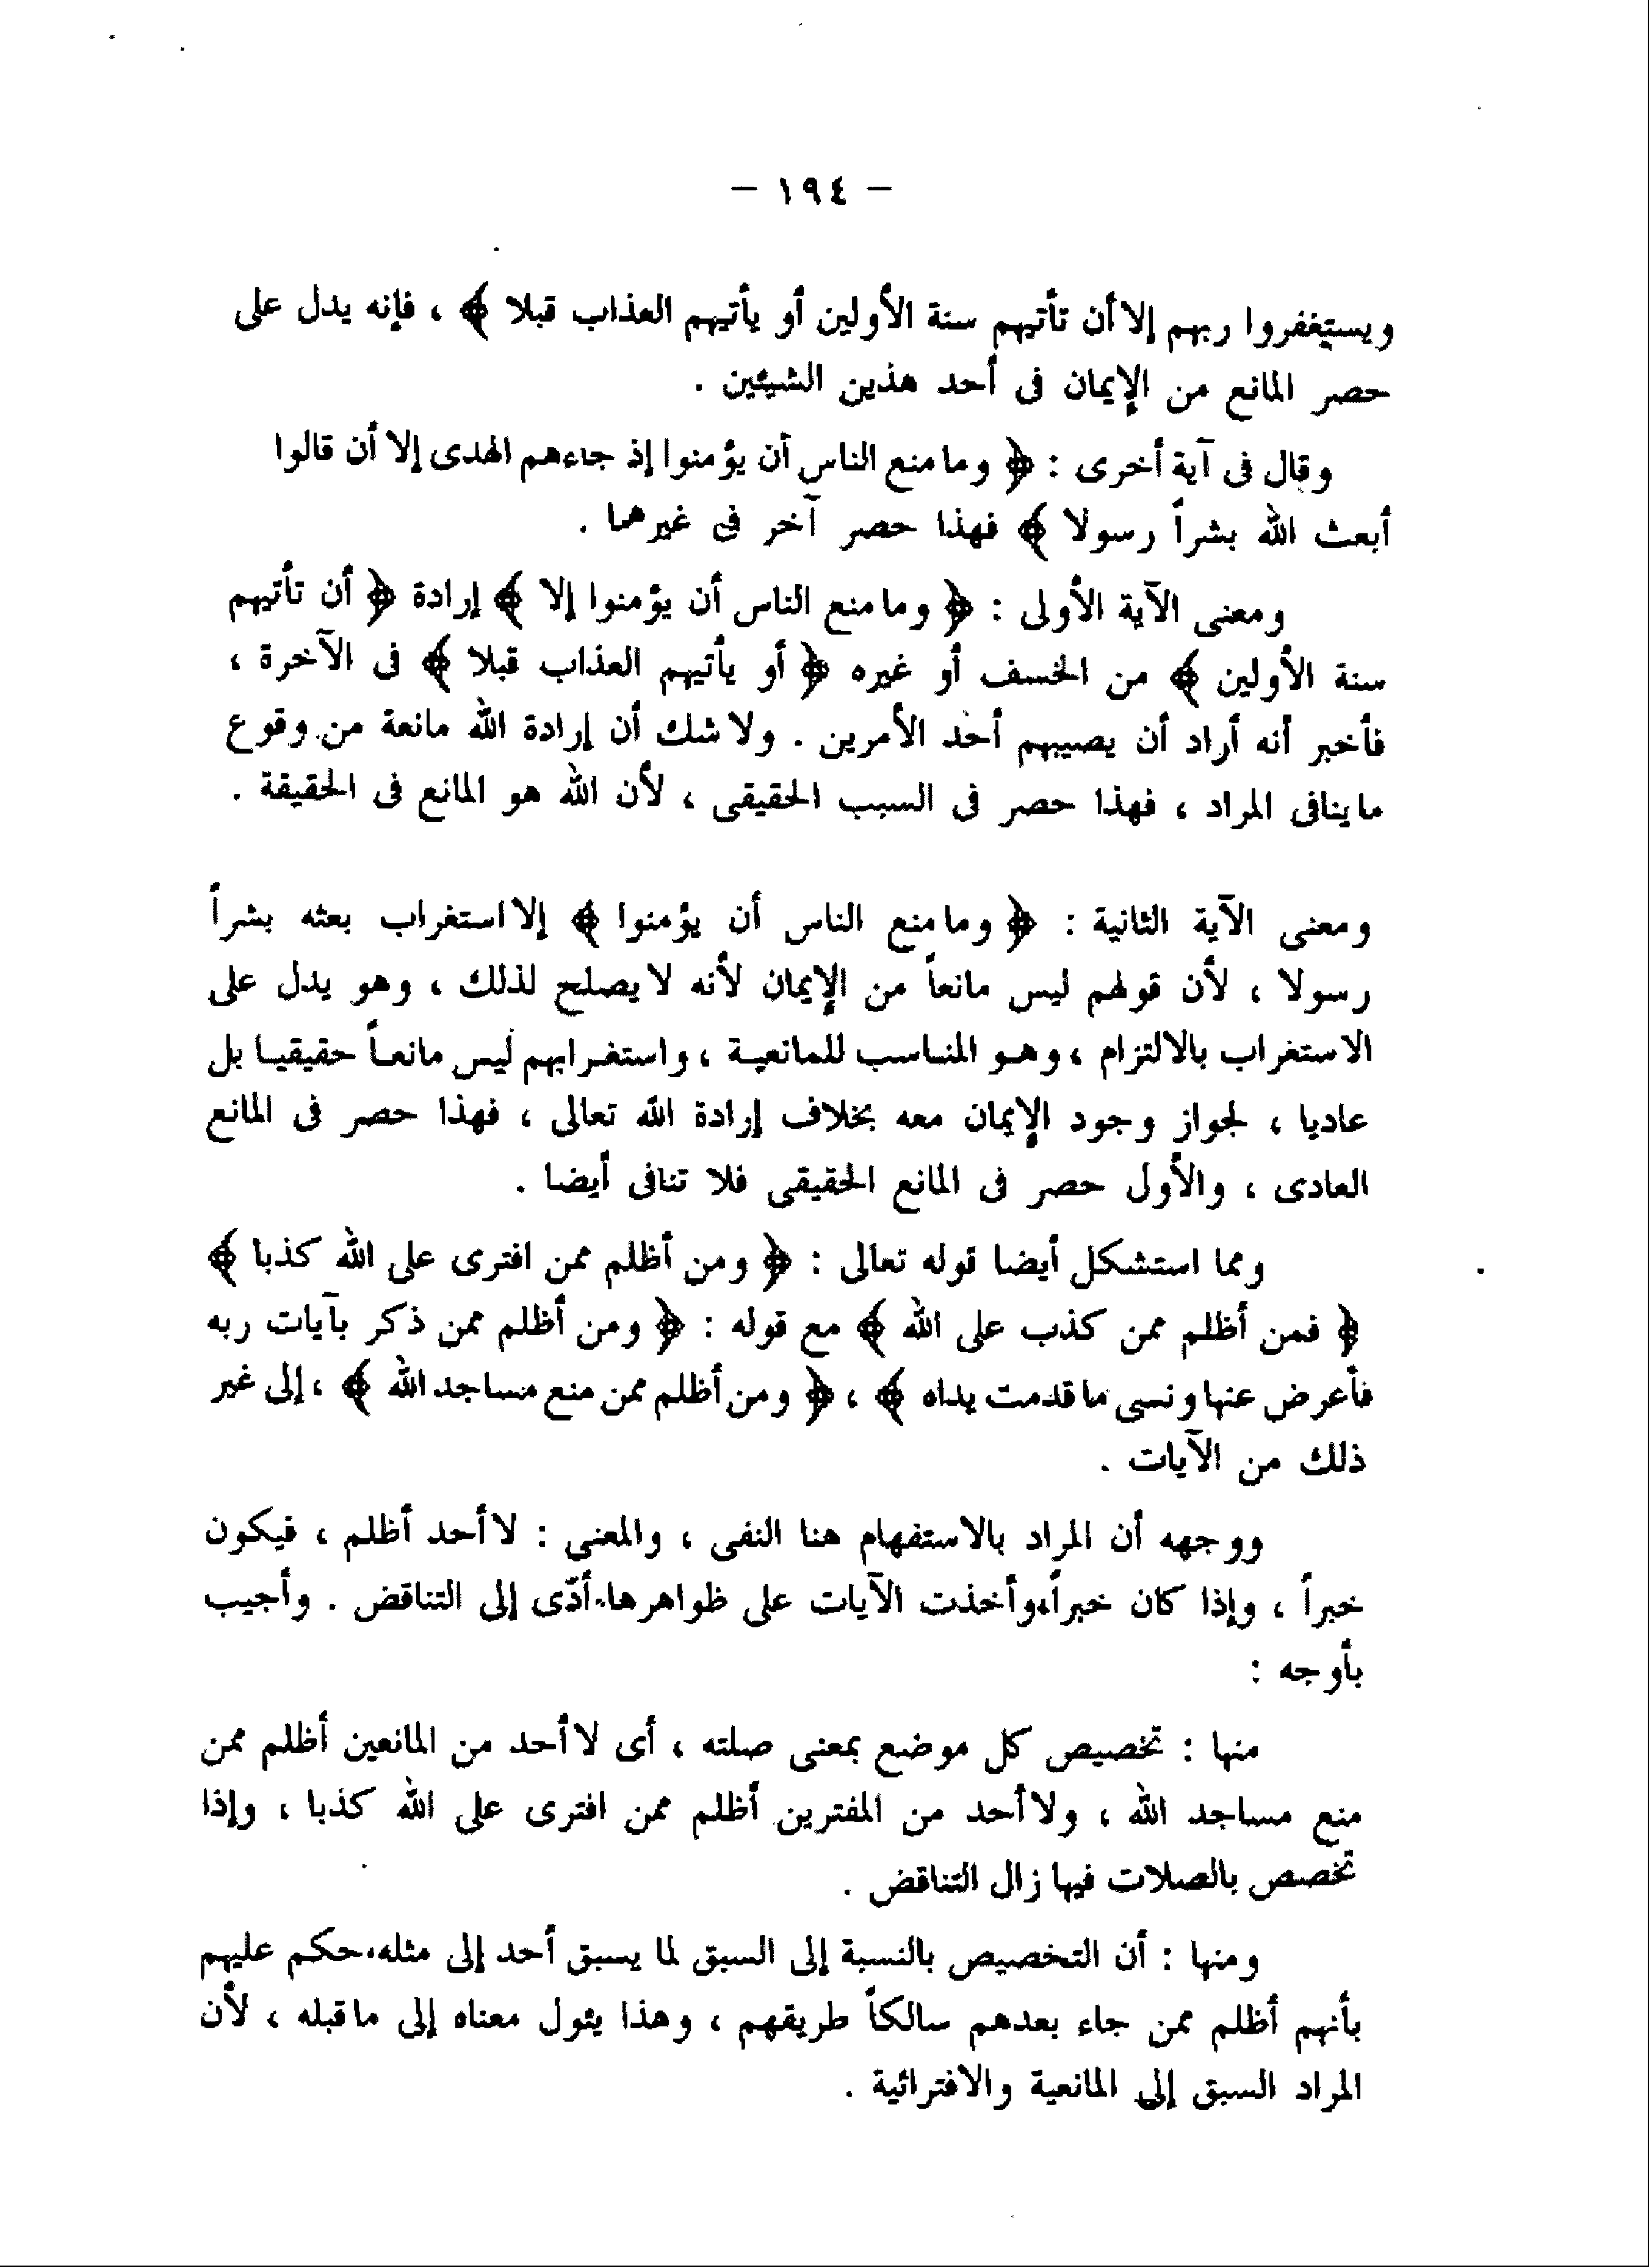 — ١٩٤ —
ويستغفروا ربهم إلا أن تأتيهم سنة الأولين أو يأتيهم العذاب قبلا ﴾ ، فإنه يدل على
حصر المانع من الإيمان فى أحد هذين الشيئين .
وقال فى آية أخرى : ﴿ وما منع الناس أن يؤمنوا إذ جاءهم الهدى إلا أن قالوا
أبعث الله بشراً رسولا ﴾ فهذا حصر آخر فى غيرهما .
ومعنى الآية الأولى : ﴿ وما منع الناس أن يؤمنوا إلا ﴾ إرادة ﴿ أن تأتيهم
سنة الأولين ﴾ من الخسف أو غيره ﴿ أو يأتيهم العذاب قبلا ﴾ فى الآخرة ،
فأخبر أنه أراد أن يصيبهم أحد الأمرين . ولا شك أن إرادة الله مانعة من وقوع
ما ينافى المراد ، فهذا حصر فى السبب الحقيقى ، لأن الله هو المانع فى الحقيقة .
ومعنى الآية الثانية : ﴿ وما منع الناس أن يؤمنوا ﴾ إلا استغراب بعثه بشراً
رسولا ، لأن قولهم ليس مانعاً من الإيمان لأنه لا يصلح لذلك ، وهو يدل على
الاستغراب بالالتزام ، وهو المناسب للمانعية ، واستغرابهم ليس مانعاً حقيقيا بل
عاديا ، لجواز وجود الإيمان معه بخلاف إرادة الله تعالى ، فهذا حصر فى المانع
العادى ، والأول حصر فى المانع الحقيقى فلا تنافى أيضا .
ومما استشكل أيضا قوله تعالى : ﴿ ومن أظلم ممن افترى على الله كذبا ﴾
﴿ فمن أظلم ممن كذب على الله ﴾ مع قوله : ﴿ ومن أظلم ممن ذكر بآيات ربه
فأعرض عنها ونسى ما قدمت يداه ﴾ ، ﴿ ومن أظلم ممن منع مساجد الله ﴾ ، إلى غير
ذلك من الآيات .
ووجهه أن المراد بالاستفهام هنا النفى ، والمعنى : لا أحد أظلم ، فيكون
خبراً ، وإذا كان خبراً، وأخذت الآيات على ظواهرها، أدّى إلى التناقض . وأجيب
بأوجه :
منها : تخصيص كل موضع بمعنى صلته ، أى لا أحد من المانعين أظلم ممن
منع مساجد الله ، ولا أحد من المفترين أظلم ممن افترى على الله كذبا ، وإذا
تخصص بالصلات فيها زال التناقض .
ومنها : أن التخصيص بالنسبة إلى السبق لما يسبق أحد إلى مثله، حكم عليهم
بأنهم أظلم ممن جاء بعدهم سالكاً طريقهم ، وهذا يئول معناه إلى ما قبله ، لأن
المراد السبق إلى المانعية والافترائية .